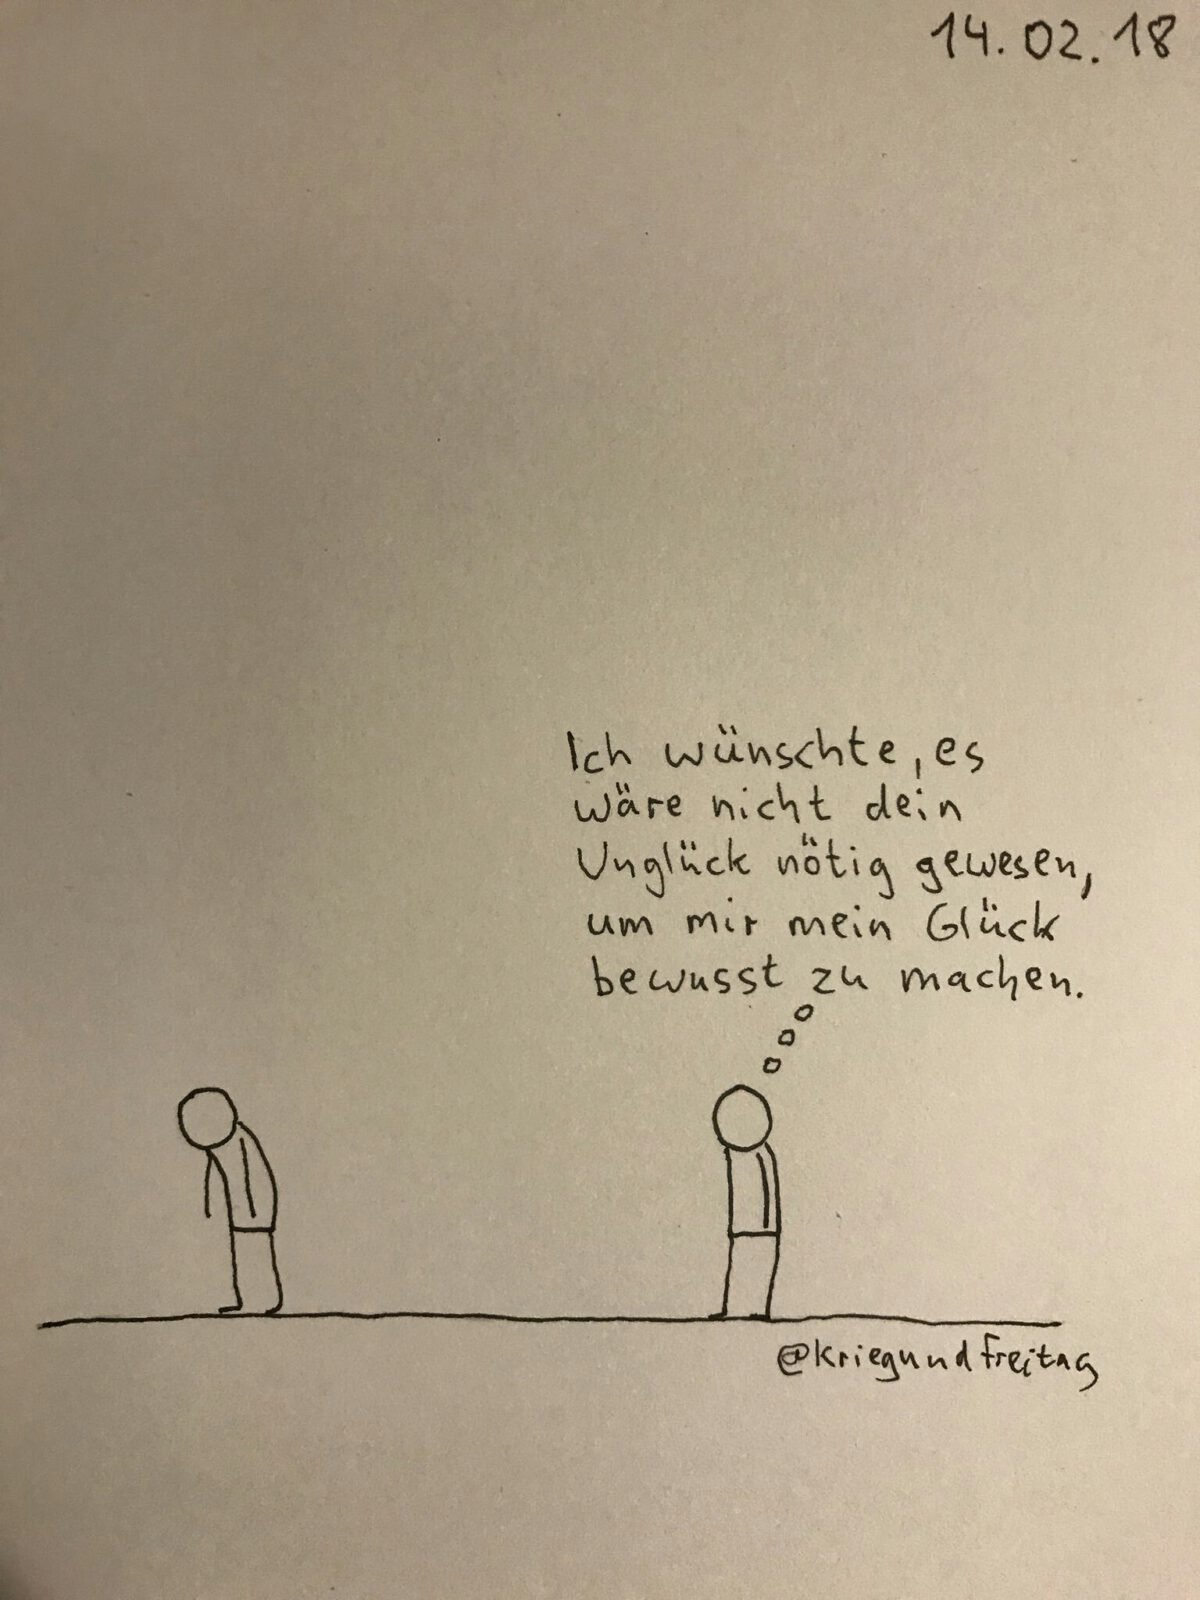 14.02.18
Ich wünschte, es
wäre nicht dein
Unglück nötig gewesen,
um mir mein Glück
bewusst zu machen.
@kriegundfreitag